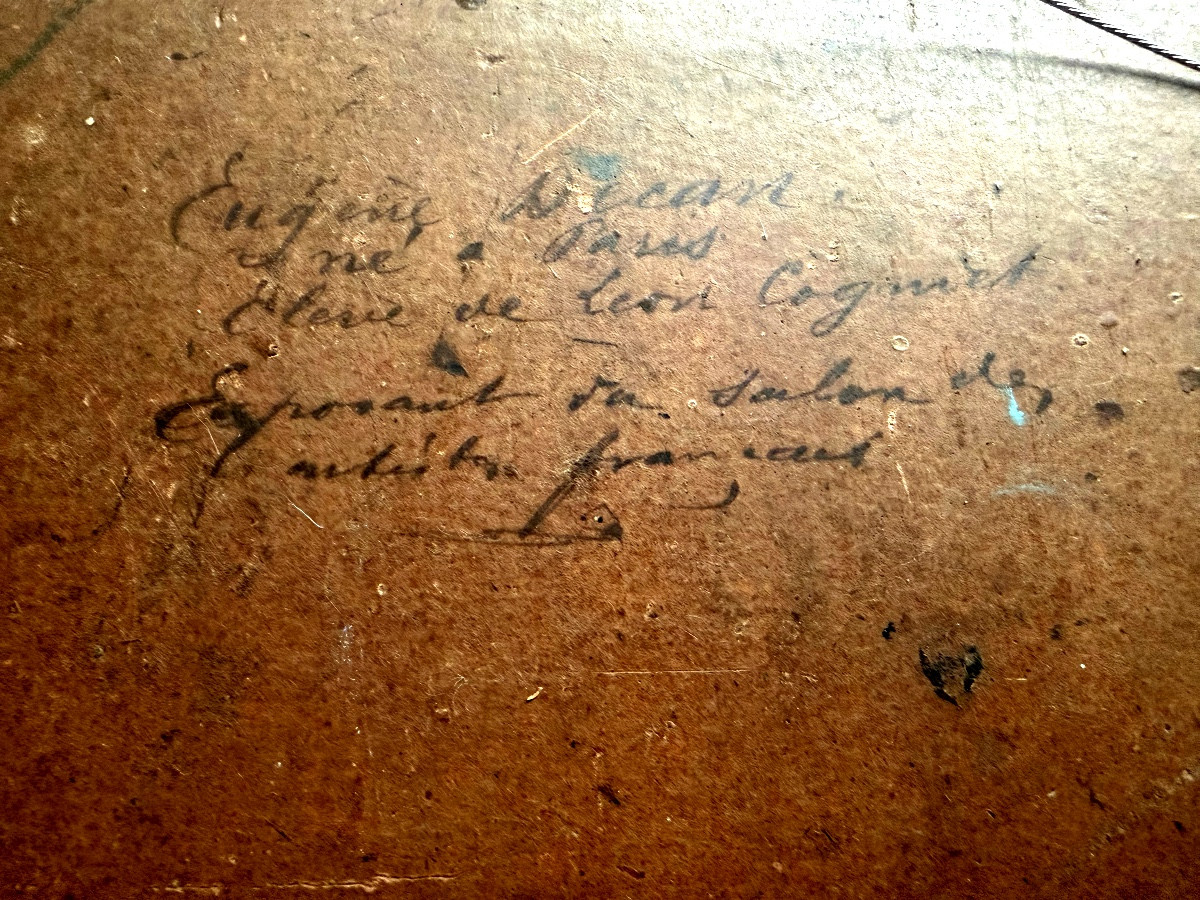 Eugène Décan.
né a Paris
Elève de Leon Cogniet
Exposant du salon des
artistes francais